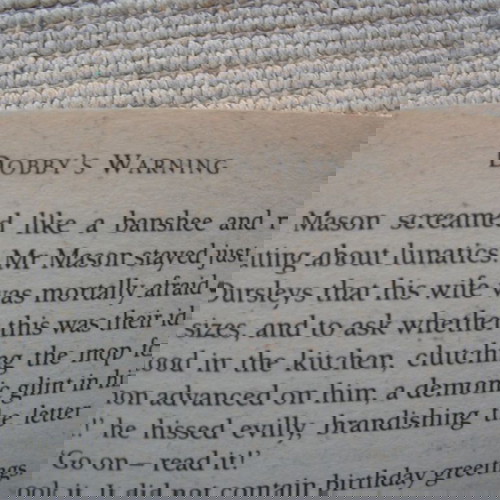 DOBBY'S WARNING
screamed like a banshee and r Mason screamed
Mr Mason stayed just tting about lunatics.
was mortally afraid Dursleys that his wife
this was their id sizes, and to ask whether
the mop ood in the kitchen, clutching
glint in hi on advanced on him, a demon
letter he hissed evilly, brandishing
'Go on – read it!'
it. It did not contain birthday greetings